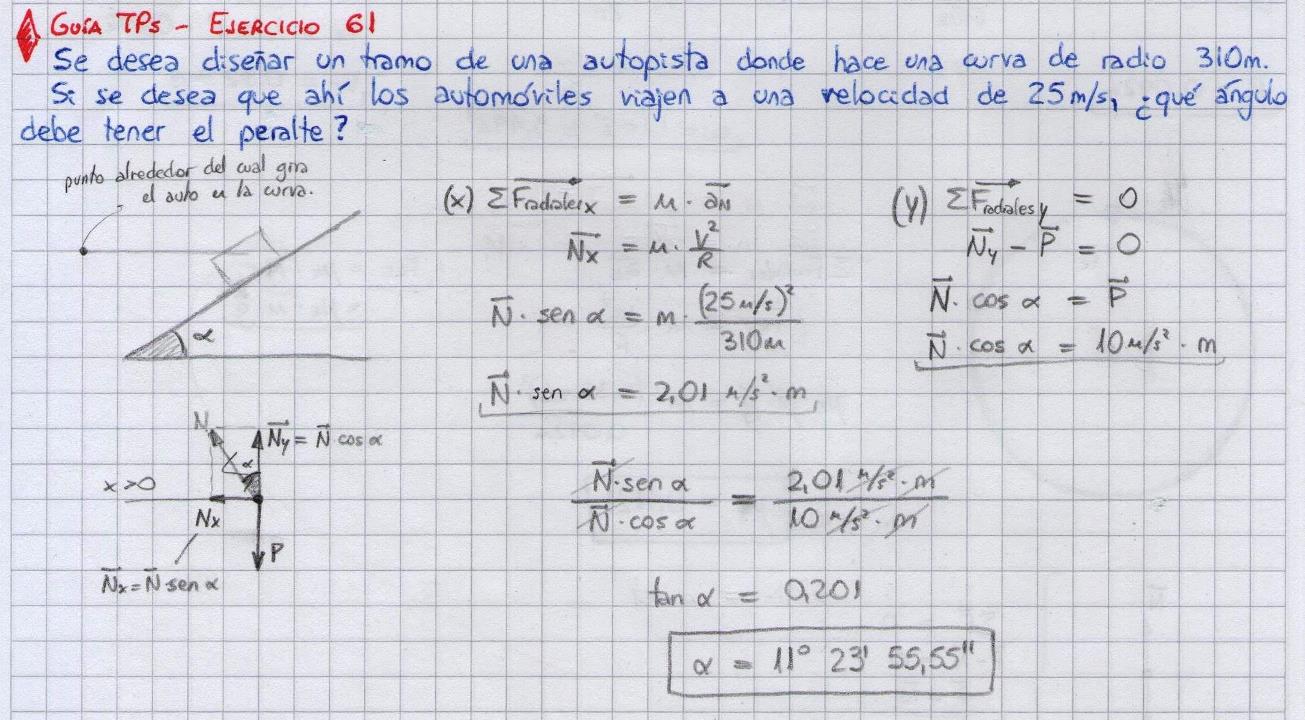 GUÍA TPs - EJERCICIO 61
Se desea diseñar un tramo de una autopista donde hace una curva de radio 310m.
Si se desea que ahí los automóviles viajen a una velocidad de 25m/s, ¿qué ángulo
debe tener el peralte?
punto alrededor del cual gira
el auto en la curva.
α
N
N⃗y = N⃗ cos α
α
x>0
Nx
P
N⃗x = N⃗ sen α
(x) ΣF⃗radialesx = m · a⃗N
N⃗x = m · V²/R
N⃗ · sen α = m · (25m/s)²/310m
N⃗ · sen α = 2,01 m/s² · m
(y) ΣF⃗radialesy = 0
N⃗y - P⃗ = 0
N⃗ · cos α = P⃗
N⃗ · cos α = 10m/s² · m
N⃗·sen α / N⃗·cos α = 2,01 m/s² · m / 10 m/s² · m
tan α = 0,201
α = 11° 23' 55,55"